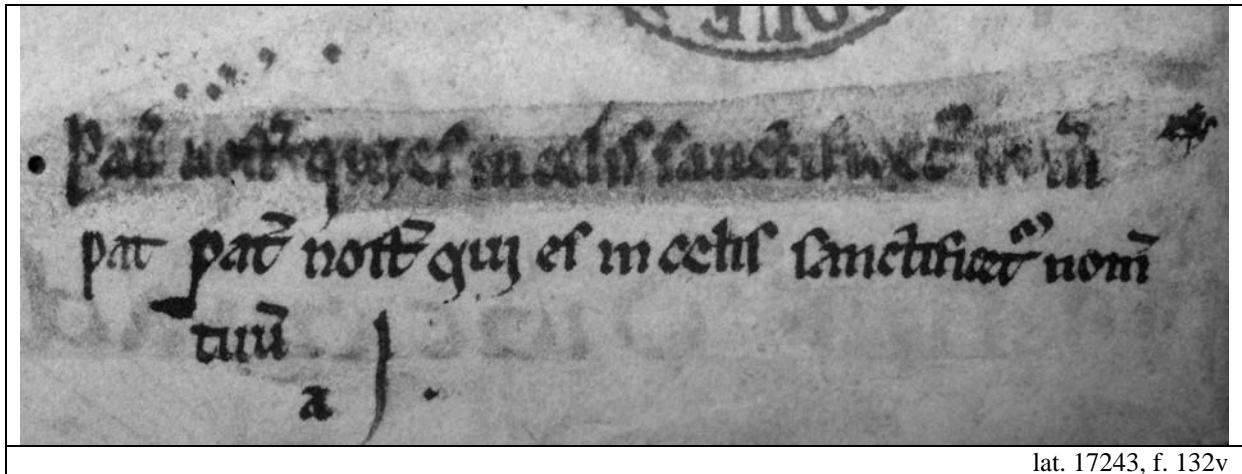 Pat̄ nost̄r quij es in celis sanctificet᷑ nom̄
pat pat̄ nost̄r quij es in celis sanctificet᷑ nom̄
tuū
a
lat. 17243, f. 132v